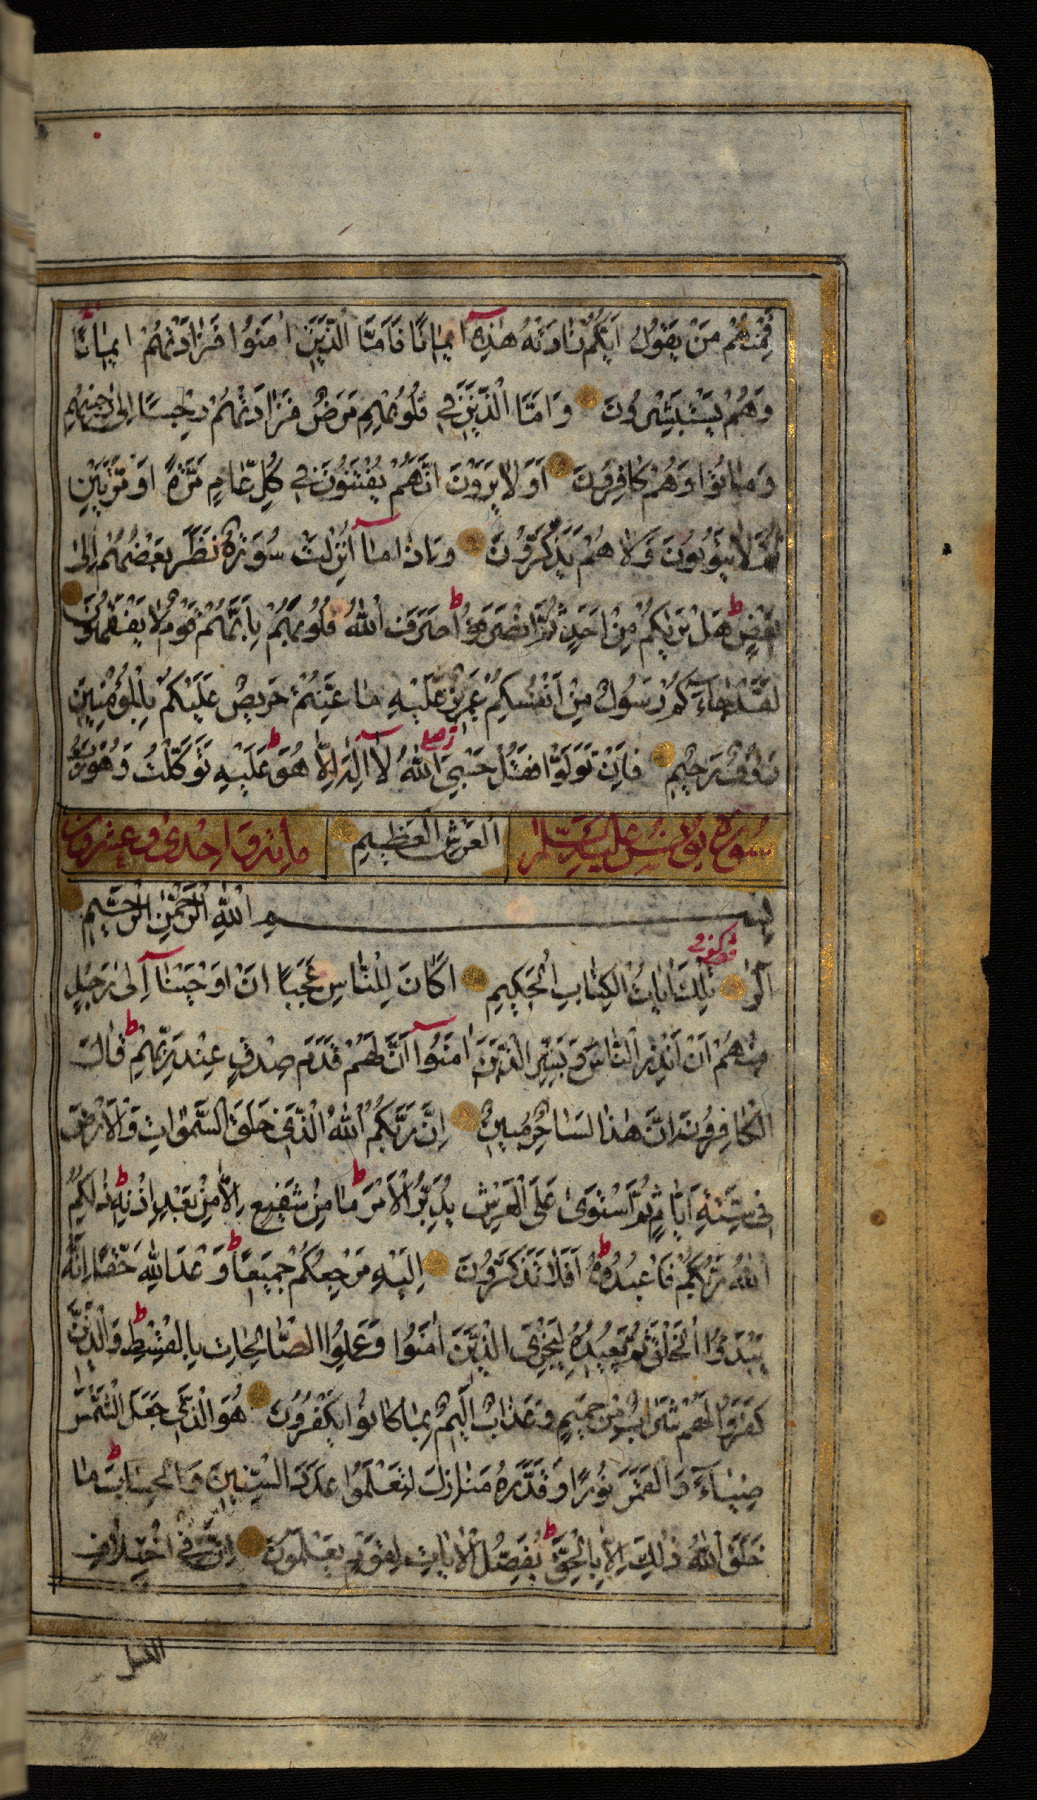 فَمِنْهُمْ مَنْ يَقُولُ اَيُّكُمْ زَادَتْهُ هٰذِهٖٓ ايمَانًا فَاَمَّا الَّذينَ اٰمَنُوا فَزَادَتْهُمْ ايمَانًا
وَهُمْ يَسْتَبْشِرُونَ وَاَمَّا الَّذينَ في قُلُوبِهِمْ مَرَضٌ فَزَادَتْهُمْ رِجْسًا اِلٰى رِجْسِهِمْ
وَمَاتُوا وَهُمْ كَافِرُونَ اَوَلَا يَرَوْنَ اَنَّهُمْ يُفْتَنُونَ في كُلِّ عَامٍ مَرَّةً اَوْ مَرَّتَيْنِ
ثُمَّ لَا يَتُوبُونَ وَلَا هُمْ يَذَّكَّرُونَ وَاِذَا مَآ اُنْزِلَتْ سُورَةٌ نَظَرَ بَعْضُهُمْ اِلٰى
بَعْضٍ ط هَلْ يَرٰيكُمْ مِنْ اَحَدٍ ثُمَّ انْصَرَفُوا ط صَرَفَ اللّٰهُ قُلُوبَهُمْ بِاَنَّهُمْ قَوْمٌ لَا يَفْقَهُونَ
لَقَدْ جَآءَكُمْ رَسُولٌ مِنْ اَنْفُسِكُمْ عَزيزٌ عَلَيْهِ مَا عَنِتُّمْ حَريصٌ عَلَيْكُمْ بِالْمُؤْمِنينَ
رَؤُفٌ رَحيمٌ فَاِنْ تَوَلَّوْا فَقُلْ حَسْبِيَ اللّٰهُ لَآ اِلٰهَ اِلَّا هُوَ ط عَلَيْهِ تَوَكَّلْتُ وَهُوَ رَبُّ
سورة يونس عليه السلام الْعَرْشِ الْعَظيمِ مائة واحدى وعشرون
بِسْمِ اللّٰهِ الرَّحْمٰنِ الرَّحيمِ
الٓرٰ تِلْكَ اٰيَاتُ الْكِتَابِ الْحَكيمِ اَكَانَ لِلنَّاسِ عَجَبًا اَنْ اَوْحَيْنَآ اِلٰى رَجُلٍ
مِنْهُمْ اَنْ اَنْذِرِ النَّاسَ وَبَشِّرِ الَّذينَ اٰمَنُوٓا اَنَّ لَهُمْ قَدَمَ صِدْقٍ عِنْدَ رَبِّهِمْ ط قَالَ
الْكَافِرُونَ اِنَّ هٰذَا لَسَاحِرٌ مُبينٌ اِنَّ رَبَّكُمُ اللّٰهُ الَّذي خَلَقَ السَّمٰوَاتِ وَالْاَرْضَ
في سِتَّةِ اَيَّامٍ ثُمَّ اسْتَوٰى عَلَى الْعَرْشِ يُدَبِّرُ الْاَمْرَ ط مَا مِنْ شَفيعٍ اِلَّا مِنْ بَعْدِ اِذْنِهٖ ط ذٰلِكُمُ
اللّٰهُ رَبُّكُمْ فَاعْبُدُوهُ ط اَفَلَا تَذَكَّرُونَ اِلَيْهِ مَرْجِعُكُمْ جَميعًا ط وَعْدَ اللّٰهِ حَقًّا اِنَّهُ
يَبْدَؤُا الْخَلْقَ ثُمَّ يُعيدُهُ لِيَجْزِيَ الَّذينَ اٰمَنُوا وَعَمِلُوا الصَّالِحَاتِ بِالْقِسْطِ ط وَالَّذينَ
كَفَرُوا لَهُمْ شَرَابٌ مِنْ حَميمٍ وَعَذَابٌ اَليمٌ بِمَا كَانُوا يَكْفُرُونَ هُوَ الَّذي جَعَلَ الشَّمْسَ
ضِيَآءً وَالْقَمَرَ نُورًا وَقَدَّرَهُ مَنَازِلَ لِتَعْلَمُوا عَدَدَ السِّنينَ وَالْحِسَابَ ط مَا
خَلَقَ اللّٰهُ ذٰلِكَ اِلَّا بِالْحَقِّ ط يُفَصِّلُ الْاٰيَاتِ لِقَوْمٍ يَعْلَمُونَ اِنَّ في اخْتِلَافِ
الليل